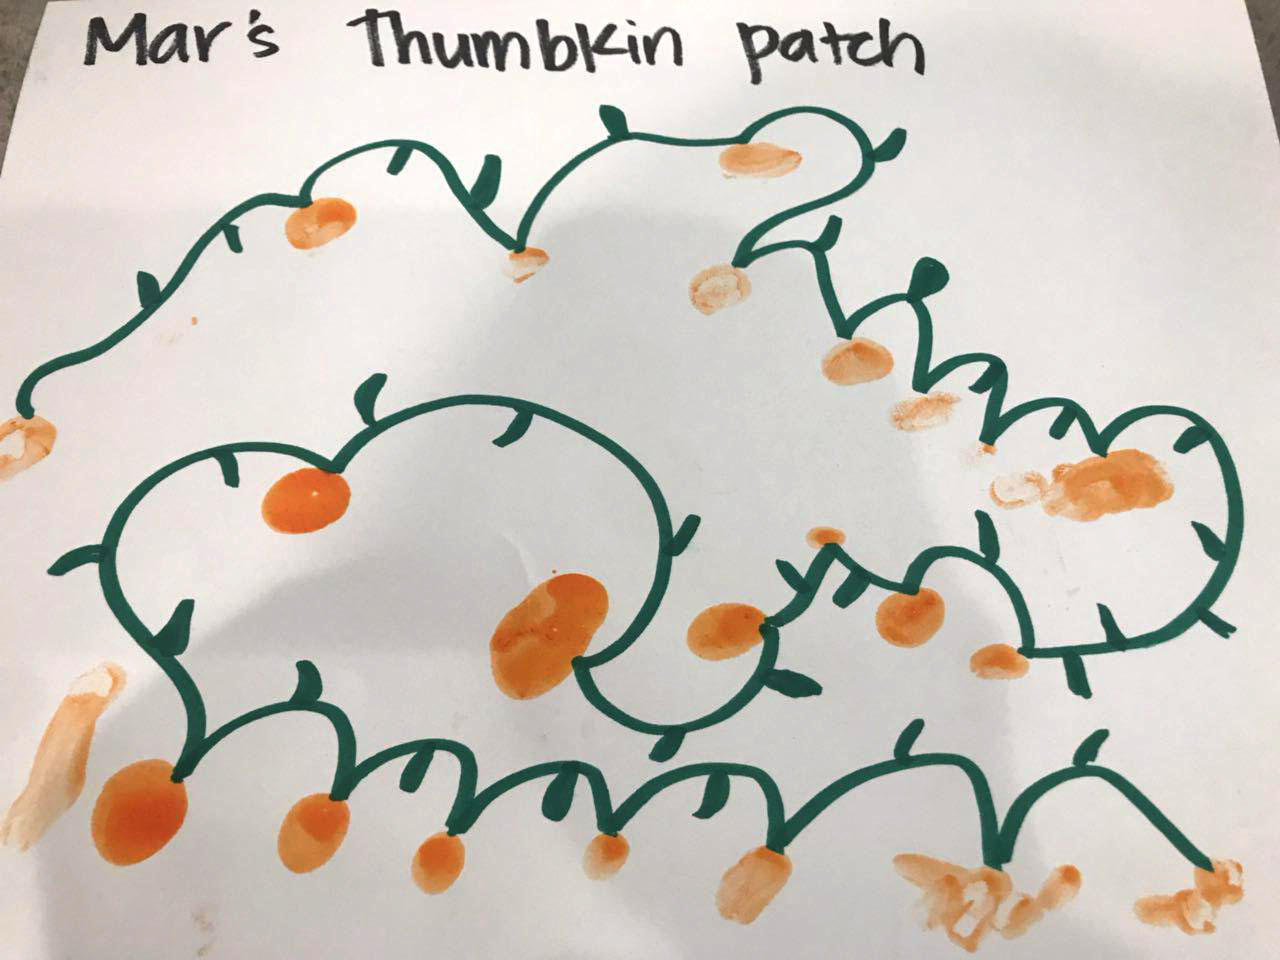 Mar's Thumbkin patch